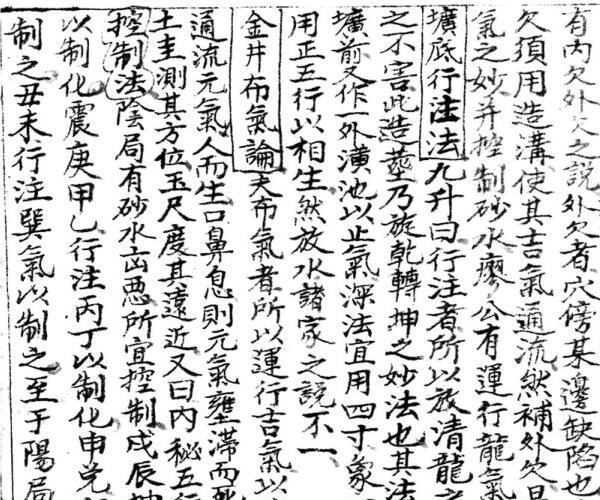 有內欠外欠之說外欠者穴傍某邊缺陷也
欠須用造溝使其吉氣通流然補外欠
氣之妙并控制砂水廖公有運行龍氣
壙底行注法九升曰行注者所以放清龍之
之不害此造塟乃旋乾轉坤之妙法也其法
壙前又作一外潢池以止氣深法宜用四寸象
用正五行以相生然放水諸家之說不一
金井布氣論夫布氣者所以運行吉氣以
通流元氣人而生口鼻息則元氣壅滯而死
土圭測其方位玉尺度其遠近又曰內秘五行
控制法陰局有砂水凶惡所宜控制戌辰坤
以制化震庚甲乙行注丙丁以制化申兌
制之丑未行注巽氣以制之至于陽局